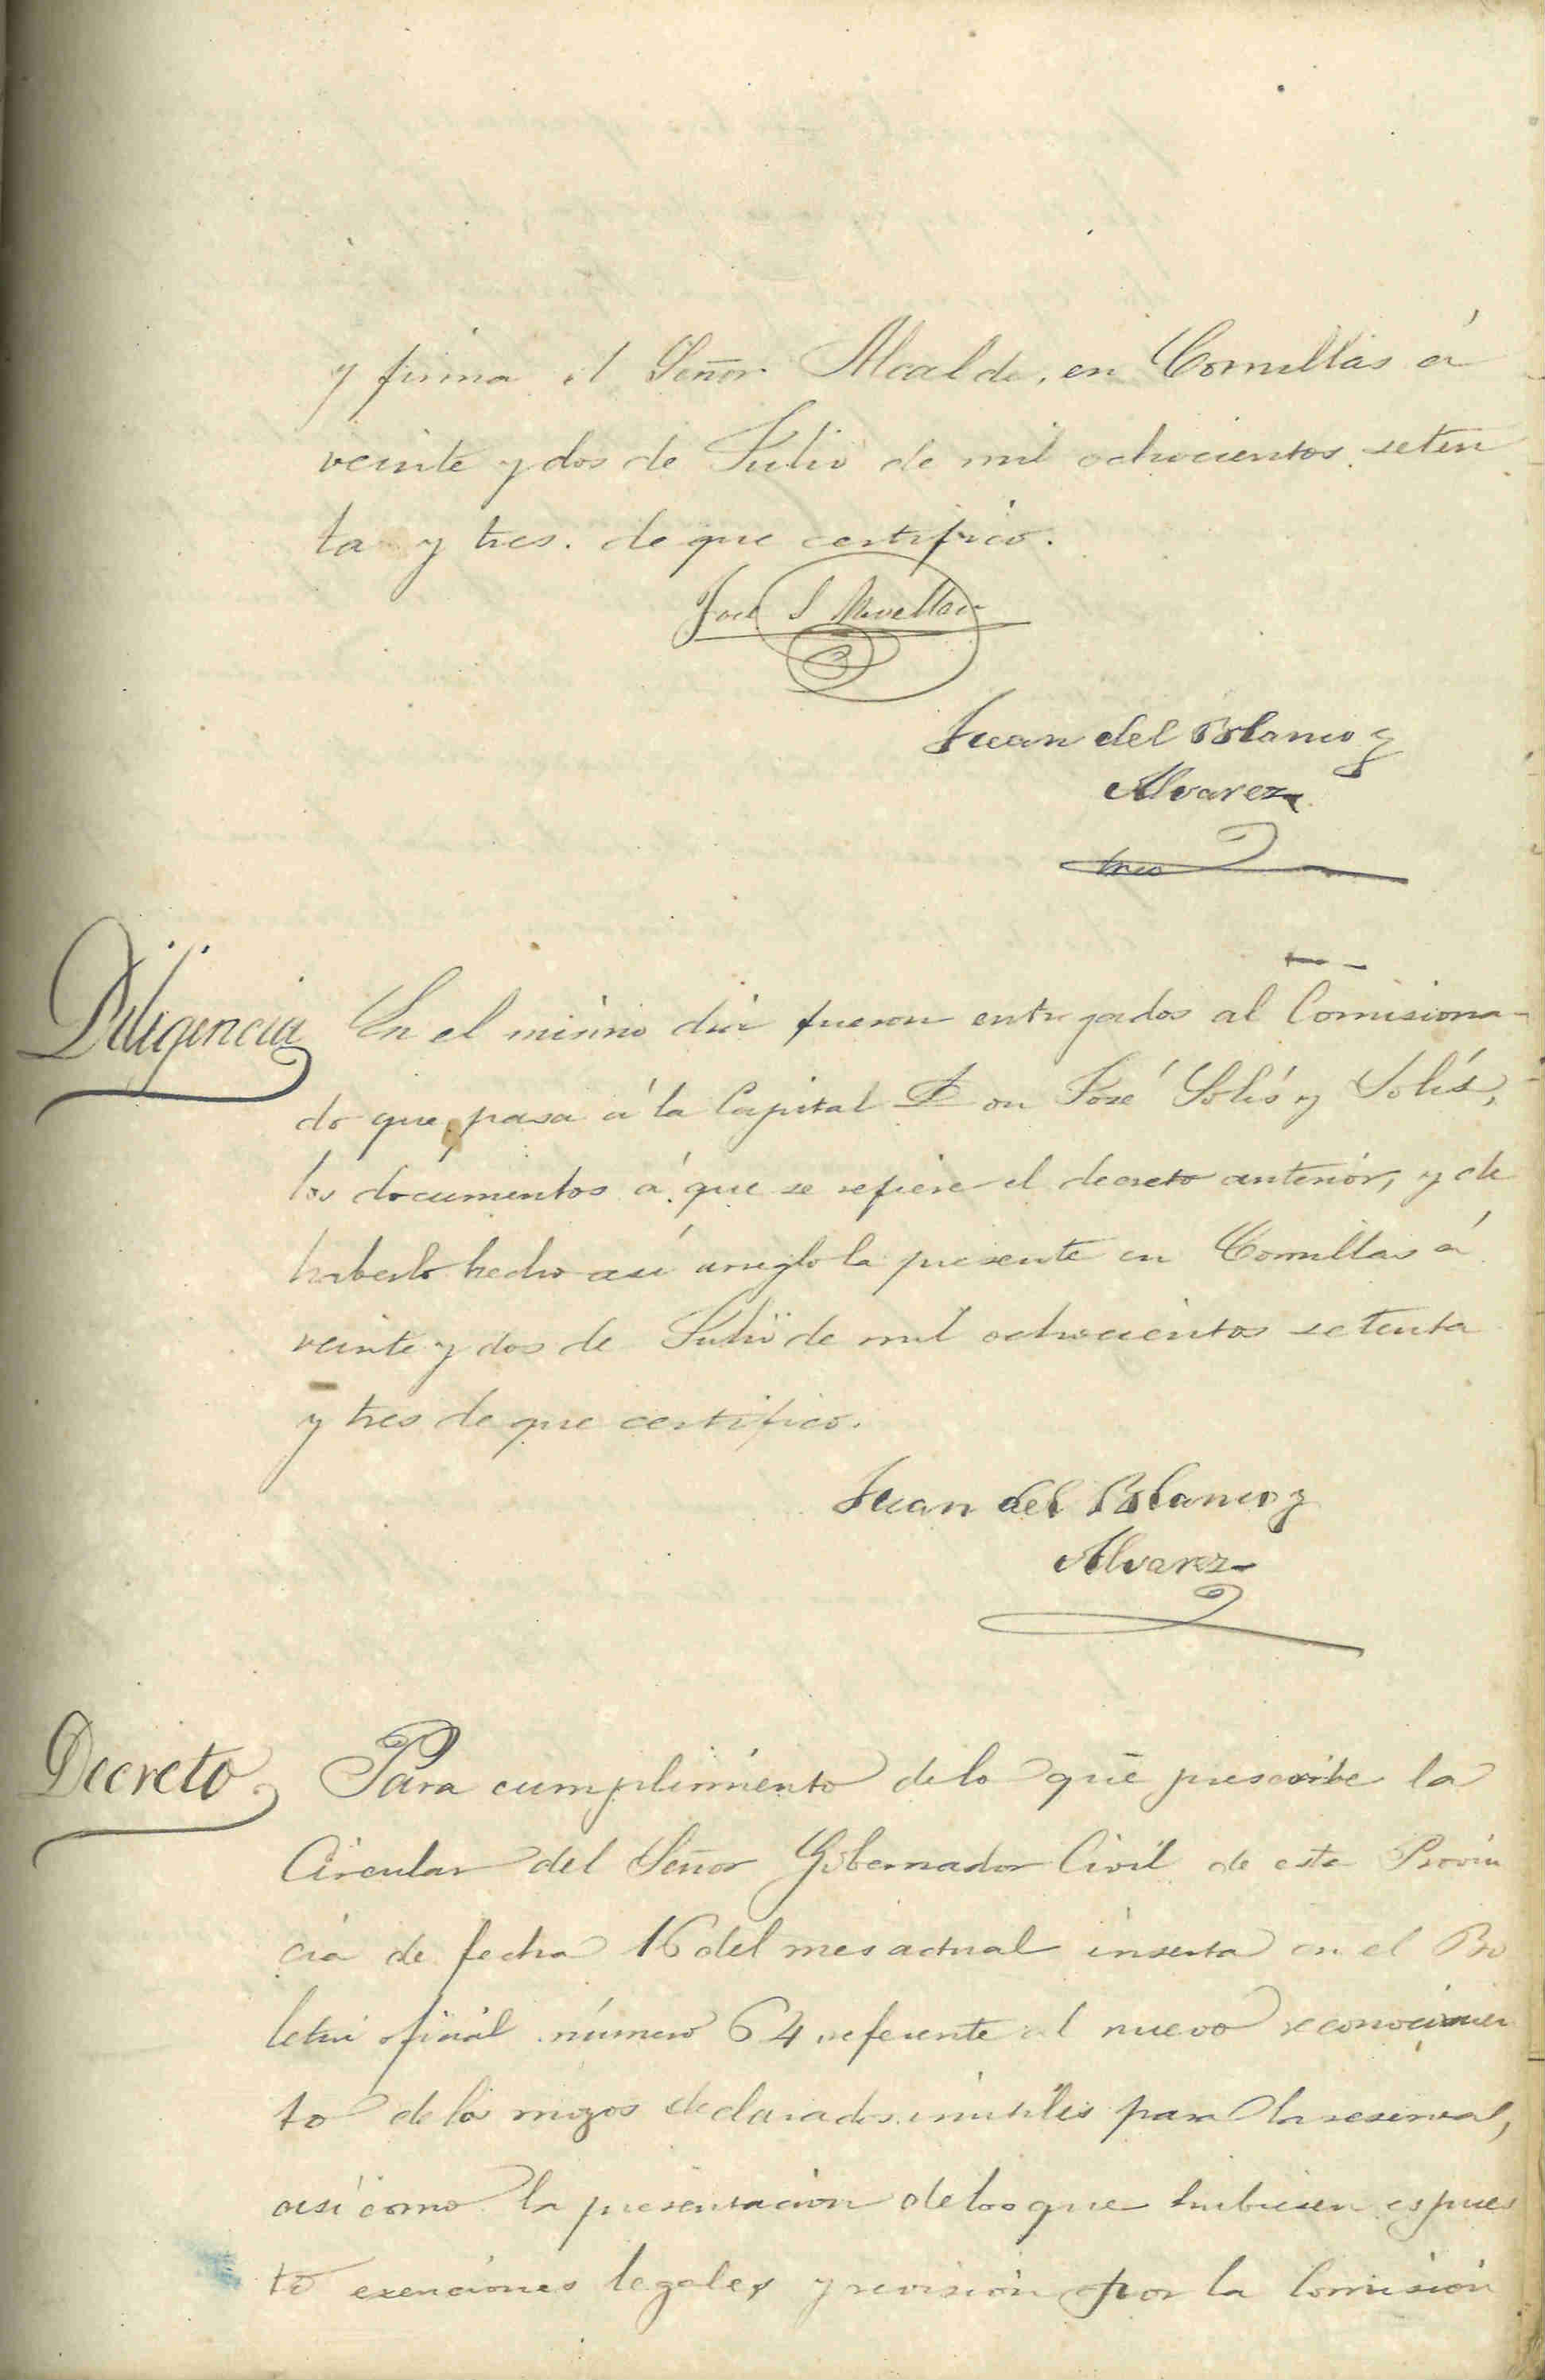 y firma el Señor Alcalde, en Comillas á
veinte y dos de Julio de mil ochocientos seten
ta y tres. de que certifico.
José S
Juan del Blanco y
Alvarez
Srio
Diligencia En el mismo dia fueron entregados al Comisiona-
do que pasa á la Capital Don José Solís y Solís,
los documentos á que se refiere el decreto anterior, y de
haberlo hecho así arreglo la presente en Comillas á
veinte y dos de Julio de mil ochocientos setenta
y tres de que certifico.
Juan del Blanco y
Alvarez
Decreto Para cumplimiento de lo que prescribe la
Circular del Señor Gobernador Civil de esta Provin
cia de fecha 16 del mes actual inserta en el Bo
letin oficial número 64 referente al nuevo reconocimien
to de los mozos declarados inutiles para la reserva,
así como la presentacion de los que hubiesen espues
to exenciones legales y revision por la Comision